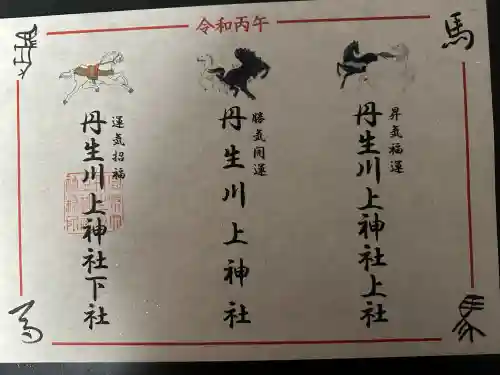 令和丙午
馬
昇気福運
丹生川上神社上社
勝気開運
丹生川上神社
運気招福
丹生川上神社下社